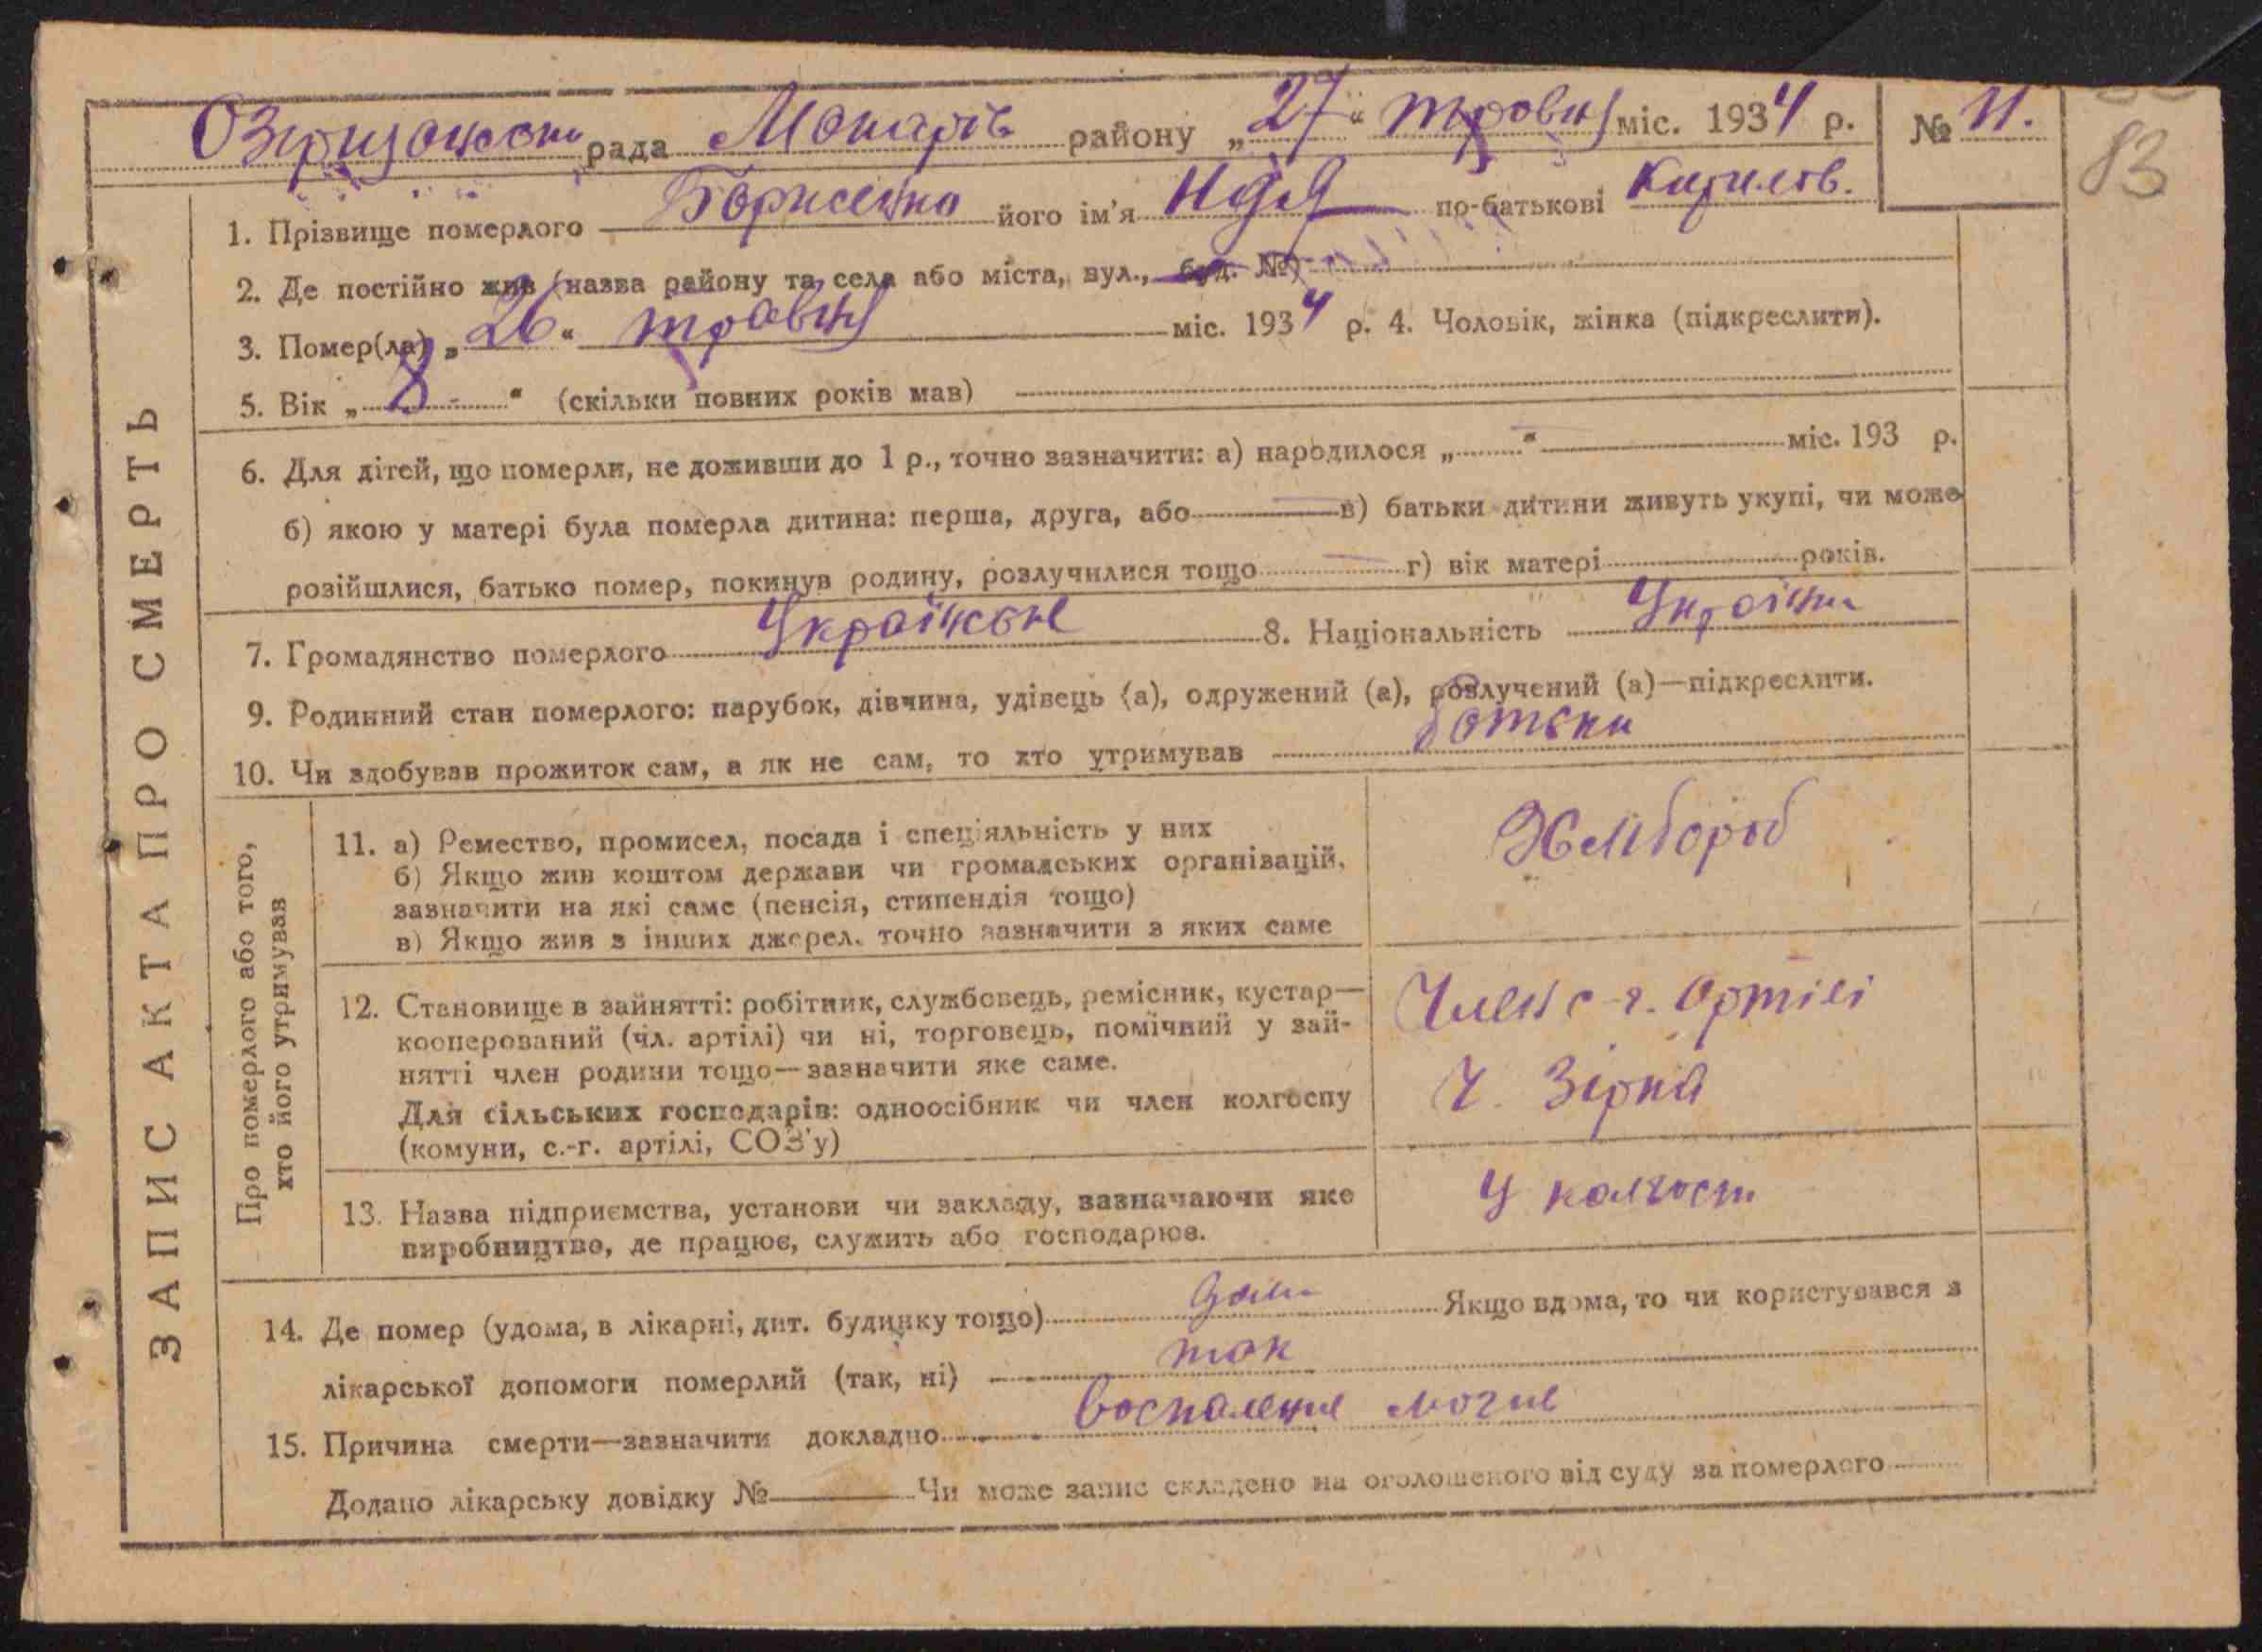 Озерщанська рада Макарів району „27“ травня міс. 1934 р. № 11.
83
1. Прізвище померлого Борисенко його ім'я Надя по-батькові Кирилов.
2. Де постійно жив (назва району та села або міста, вул., буд. №)
3. Помер(ла) „26“ травня міс. 1934 р. 4. Чоловік, жінка (підкреслити).
5. Вік „8“ (скільки повних років мав)
6. Для дітей, що померли, не доживши до 1 р., точно зазначити: а) народилося „ “ міс. 193 р.
б) якою у матері була померла дитина: перша, друга, або в) батьки дитини живуть укупі, чи може
розійшлися, батько помер, покинув родину, розлучилися тощо г) вік матері років.
7. Громадянство померлого Українське 8. Національність Україн
9. Родинний стан померлого: парубок, дівчина, удівець (а), одружений (а), розлучений (а)—підкреслити.
10. Чи здобував прожиток сам, а як не сам, то хто утримував батьки
ЗАПИС АКТА ПРО СМЕРТЬ
Про померлого або того,
хто його утримував
11. а) Ремество, промисел, посада і спеціяльність у них
б) Якщо жив коштом держави чи громадських організацій,
зазначити на які саме (пенсія, стипендія тощо)
в) Якщо жив з інших джерел, точно зазначити з яких саме
Хлібороб
12. Становище в зайнятті: робітник, службовець, ремісник, кустар—
кооперований (чл. артілі) чи ні, торговець, помічний у зай-
нятті член родини тощо—зазначити яке саме.
Для сільських господарів: одноосібник чи член колгоспу
(комуни, с.-г. артілі, СОЗ'у)
Член с-г. Артілі
Ч. Зірка
13. Назва підприємства, установи чи закладу, зазначаючи яке
виробництво, де працює, служить або господарює.
У колгосп
14. Де помер (удома, в лікарні, дит. будинку тощо) дома Якщо вдома, то чи користувався з
лікарської допомоги померлий (так, ні) так
15. Причина смерти—зазначити докладно воспаление
Додано лікарську довідку № Чи може запис складено на оголошеного від суду за померлого